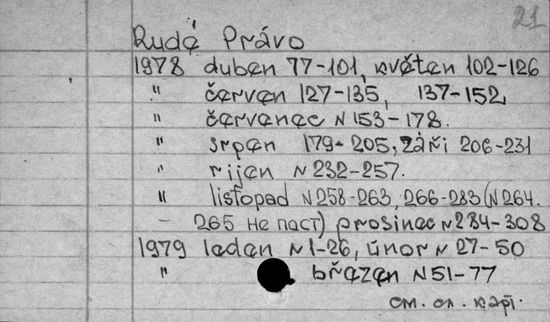 21
Rudé Právo
1978 duben 77-101, květen 102-126
" červen 127-135, 137-152,
" červenec N 153-178.
" srpen 179-205, září 206-231
" rijen N 232-257.
" listopad N 258-263, 266-283 (N 264.
- 265 не пост) prosinec N 284-308
1979 leden N 1-26, únor N 27-50
" březen N 51-77
см. сл. карт.